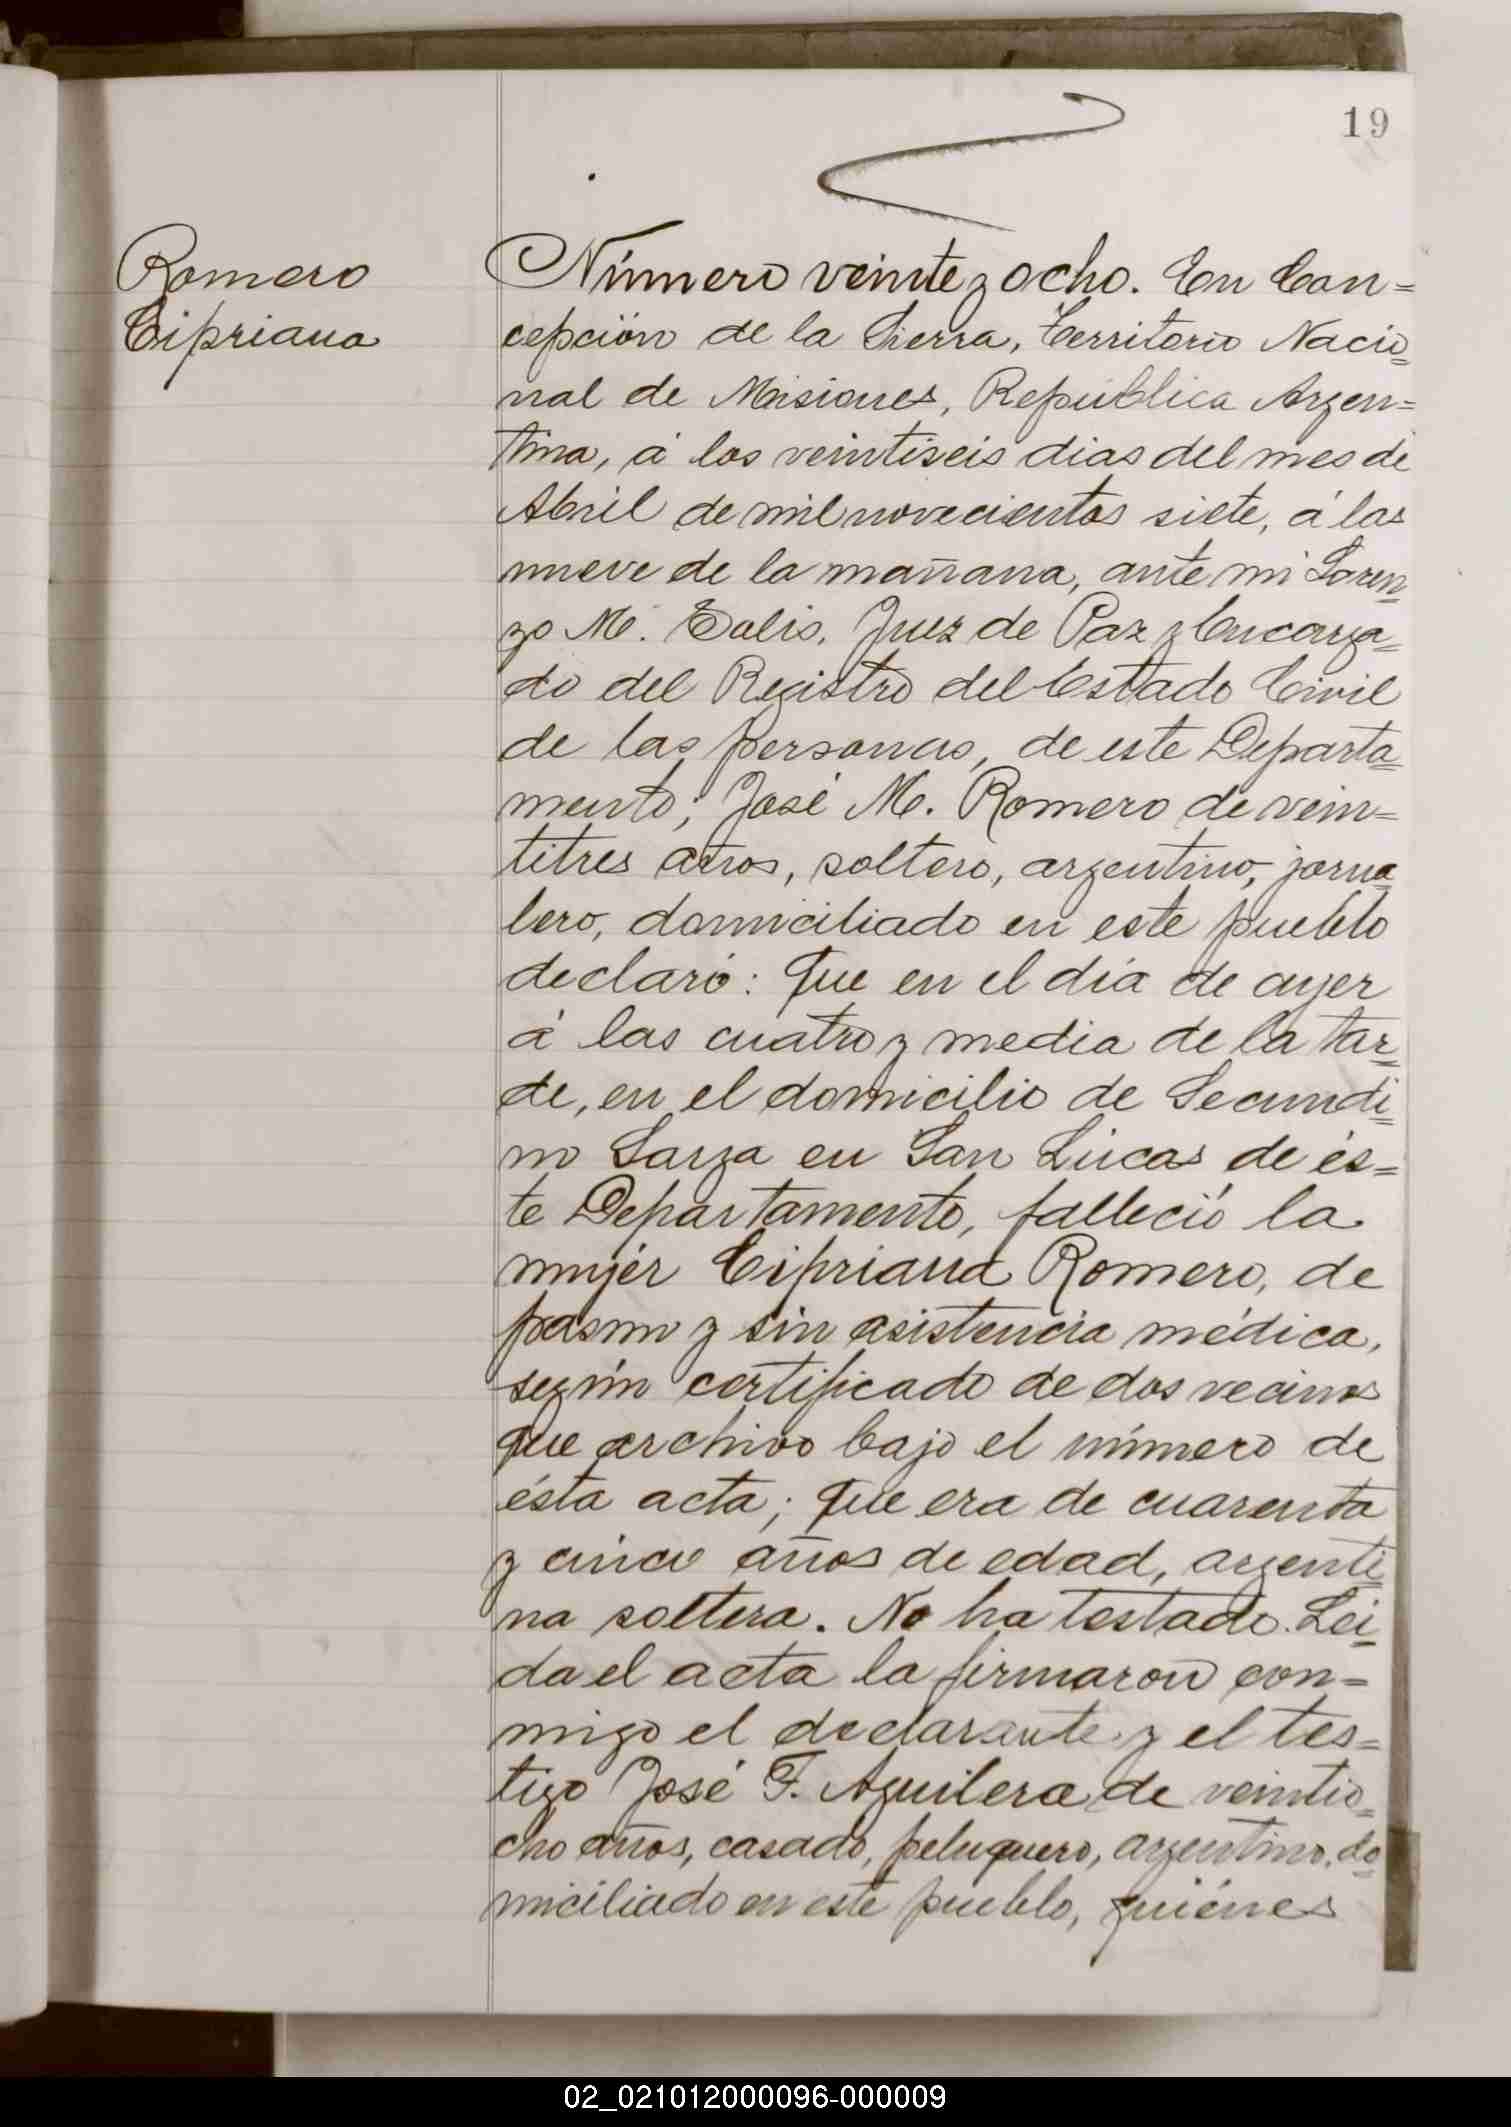 19
Romero
Cipriana
Número veinte y ocho. En Con=
cepción de la Sierra, Territorio Nacio=
nal de Misiones, República Argen=
tina, á los veintiseis dias del mes de
Abril de mil novecientos siete, á las
nueve de la mañana, ante mi Loren=
zo M. Solis, Juez de Paz y Encarga=
do del Registro del Estado Civil
de las personas, de este Departa=
mento; José M. Romero de vein=
titres años, soltero, argentino, jorna=
lero, domiciliado en este pueblo
declaró: Que en el día de ayer
á las cuatro y media de la tar=
de, en el domicilio de Secundi=
no Sarza en San Lúcas de és=
te Departamento, falleció la
mujér Cipriana Romero, de
pasmo y sin asistencia médica,
según certificado de dos vecinos
que archivo bajo el número de
ésta acta; Que era de cuarenta
y cinco años de edad, argenti=
na soltera. No ha testado. Lei=
da el acta la firmaron con=
migo el declarante y el tes=
tigo José F. Aguilera de veintio=
cho años, casado, peluquero, argentino, do=
miciliado en este pueblo, quiénes
02_021012000096-000009